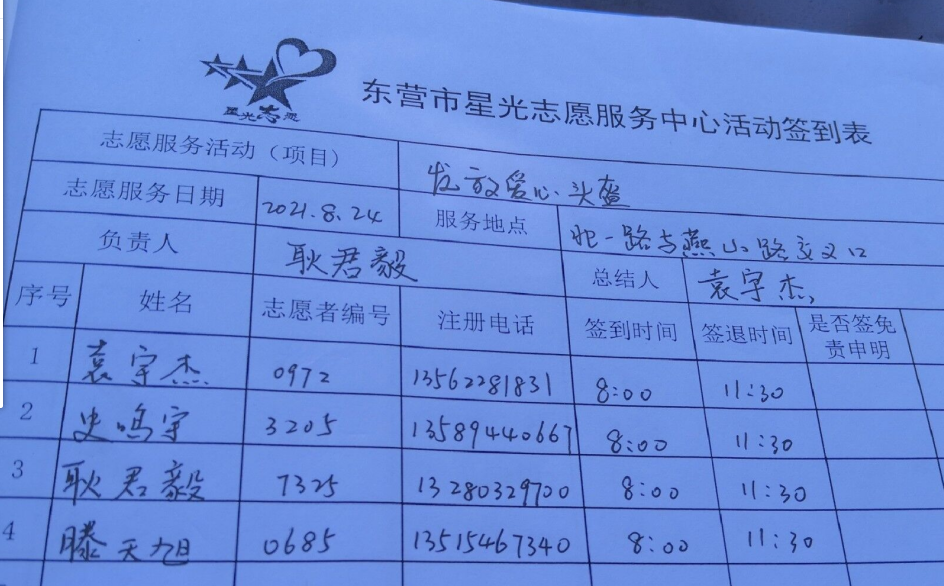 星光志愿
东营市星光志愿服务中心活动签到表
志愿服务活动（项目） 发放爱心头盔
志愿服务日期 2021.8.24 服务地点 北一路与燕山路交叉口
负责人 耿君毅 总结人 袁宇杰
序号 姓名 志愿者编号 注册电话 签到时间 签退时间 是否签免责申明
1 袁宇杰 0972 13562281831 8:00 11:30
2 史鸣宇 3205 13589440667 8:00 11:30
3 耿君毅 7325 13280329700 8:00 11:30
4 滕天旭 0685 13515467340 8:00 11:30